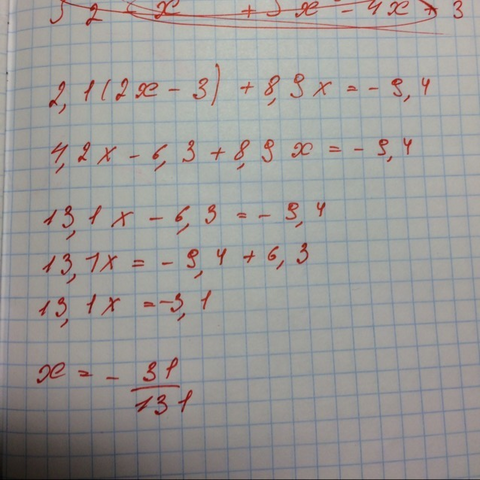 5 2 x + 5x = 4x + 3
2,1(2x - 3) + 8,9x = -9,4
4,2x - 6,3 + 8,9x = -9,4
13,1x - 6,3 = -9,4
13,1x = -9,4 + 6,3
13,1x = -3,1
x = - 31/131